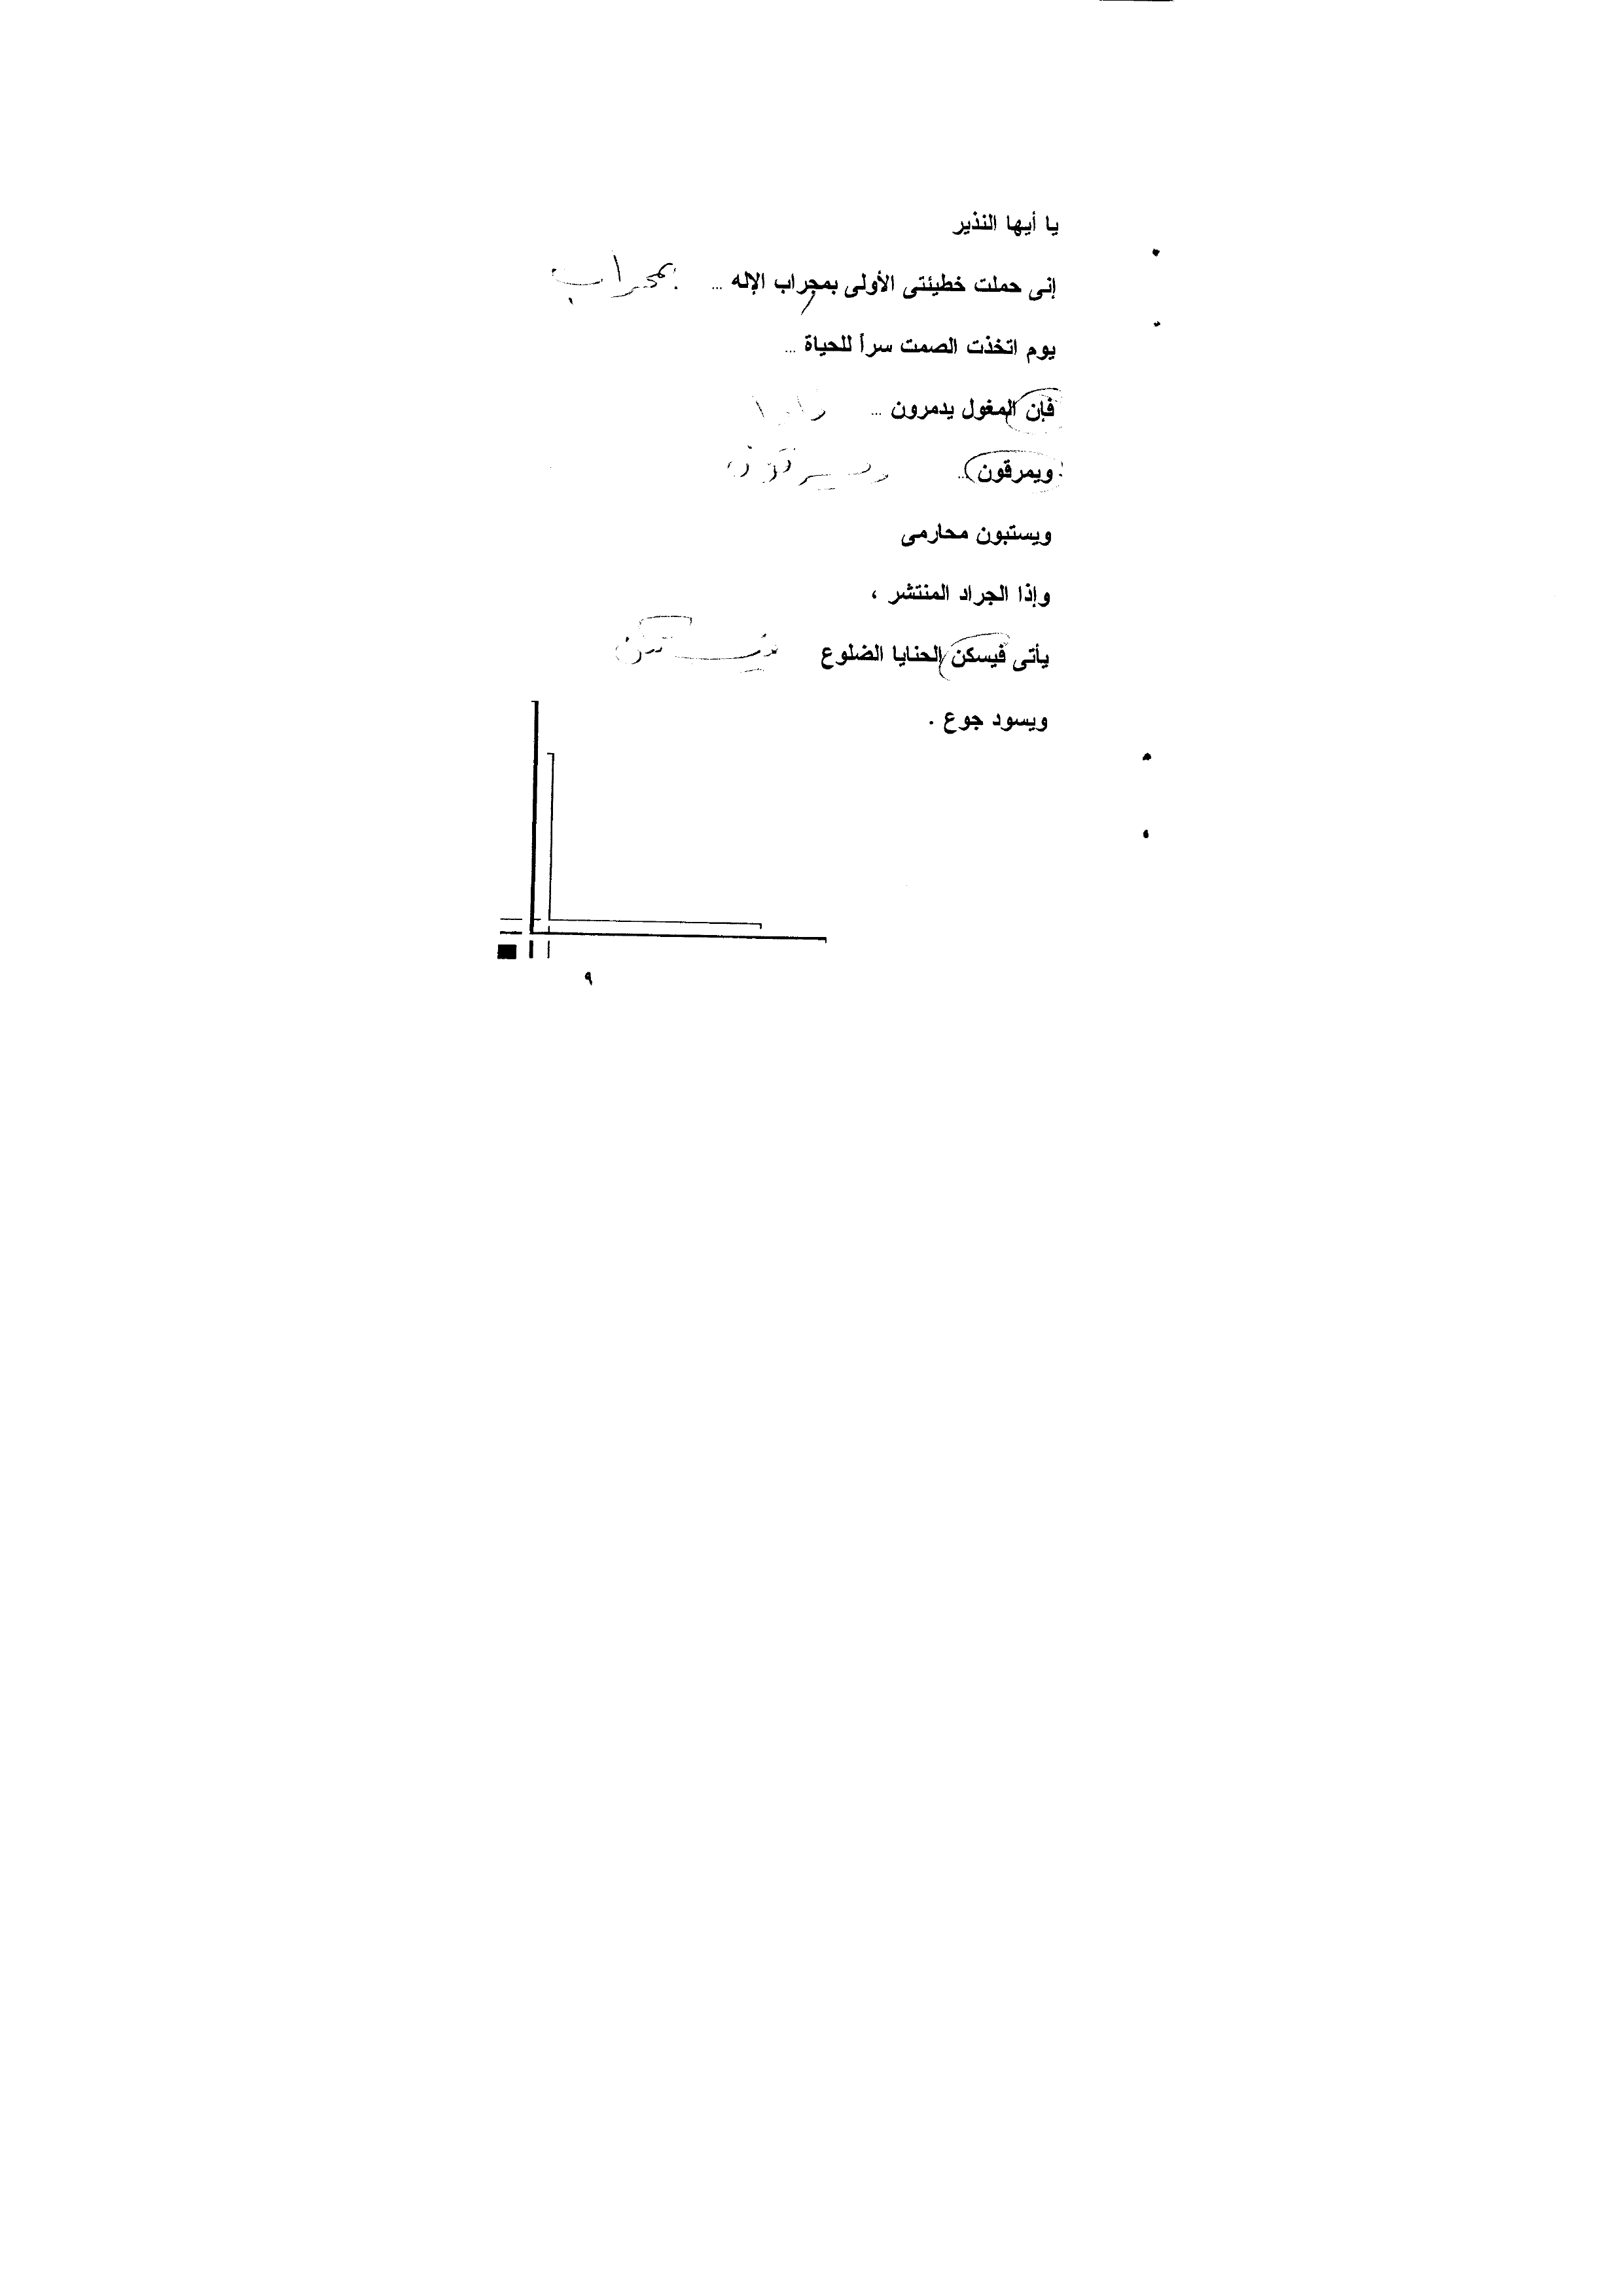 يا أيها النذير
إنى حملت خطيئتى الأولى بمجراب الإله ... بمحراب
يوم اتخذت الصمت سراً للحياة ...
فإن المغول يدمرون ...
ويمرقون ... ويسرقون
ويستبون محارمى
وإذا الجراد المنتشر ،
يأتى فيسكن الحنايا الضلوع
ويسود جوع .
٩